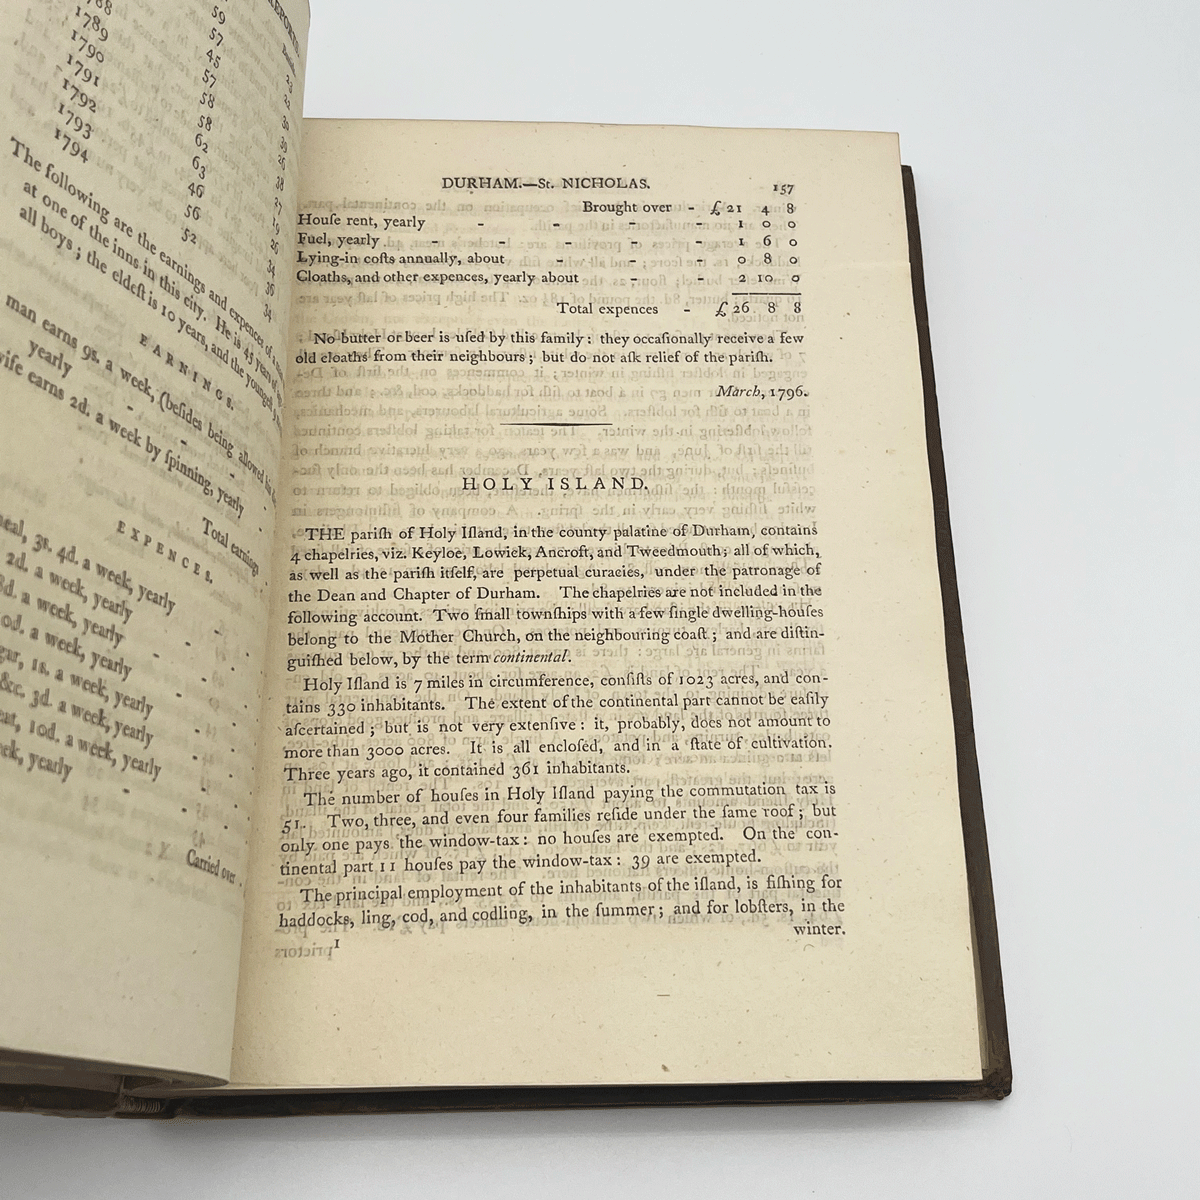 REPORTS.
1789
1790
1791
1792
1793
1794
59
57
45
57
58
58
62
63
46
56
52
The following are the earnings and expences of a
at one of the inns in this city. He is 45 years of
all boys; the eldeſt is 10 years, and the youngest
EARNINGS.
man earns 9s. a week, (beſides being allowed his
yearly - - -
wife earns 2d. a week by ſpinning, yearly -
Total earnings
EXPENCES.
3s. 4d. a week, yearly
2d. a week, yearly
a week, yearly
a week, yearly
1s. a week, yearly
&c. 3d. a week, yearly
10d. a week, yearly
yearly
Carried over
DURHAM.—St. NICHOLAS. 157
Brought over - £21 4 8
Houſe rent, yearly - - - - 1 0 0
Fuel, yearly - - - - - 1 6 0
Lying-in coſts annually, about - - - 0 8 0
Cloaths, and other expences, yearly about - - 2 10 0
Total expences - £26 8 8
No butter or beer is uſed by this family: they occaſionally receive a few
old cloaths from their neighbours; but do not aſk relief of the pariſh.
March, 1796.
HOLY ISLAND.
THE pariſh of Holy Iſland, in the county palatine of Durham, contains
4 chapelries, viz. Keyloe, Lowick, Ancroft, and Tweedmouth; all of which,
as well as the pariſh itſelf, are perpetual curacies, under the patronage of
the Dean and Chapter of Durham. The chapelries are not included in the
following account. Two ſmall townſhips with a few ſingle dwelling-houſes
belong to the Mother Church, on the neighbouring coaſt; and are diſtin-
guiſhed below, by the term continental.
Holy Iſland is 7 miles in circumference, conſiſts of 1023 acres, and con-
tains 330 inhabitants. The extent of the continental part cannot be eaſily
aſcertained; but is not very extenſive: it, probably, does not amount to
more than 3000 acres. It is all encloſed, and in a ſtate of cultivation.
Three years ago, it contained 361 inhabitants.
The number of houſes in Holy Iſland paying the commutation tax is
51. Two, three, and even four families reſide under the ſame roof; but
only one pays the window-tax: no houſes are exempted. On the con-
tinental part 11 houſes pay the window-tax: 39 are exempted.
The principal employment of the inhabitants of the iſland, is fiſhing for
haddocks, ling, cod, and codling, in the ſummer; and for lobſters, in the
winter.
1